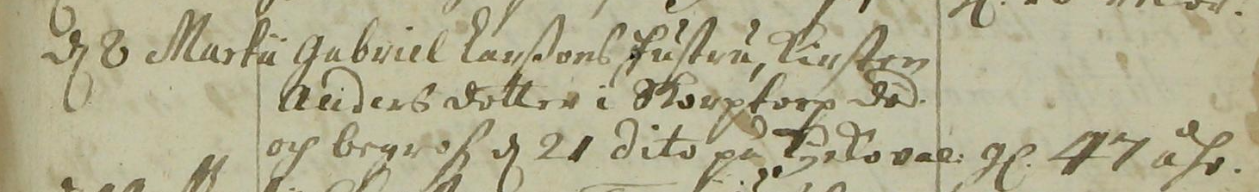 d 8 Martii Gabriel Larssons hustru, Kirsten
Anders dotter i Skorptorp död.
och begrofs d 21 dito på gl. 47 åhr.